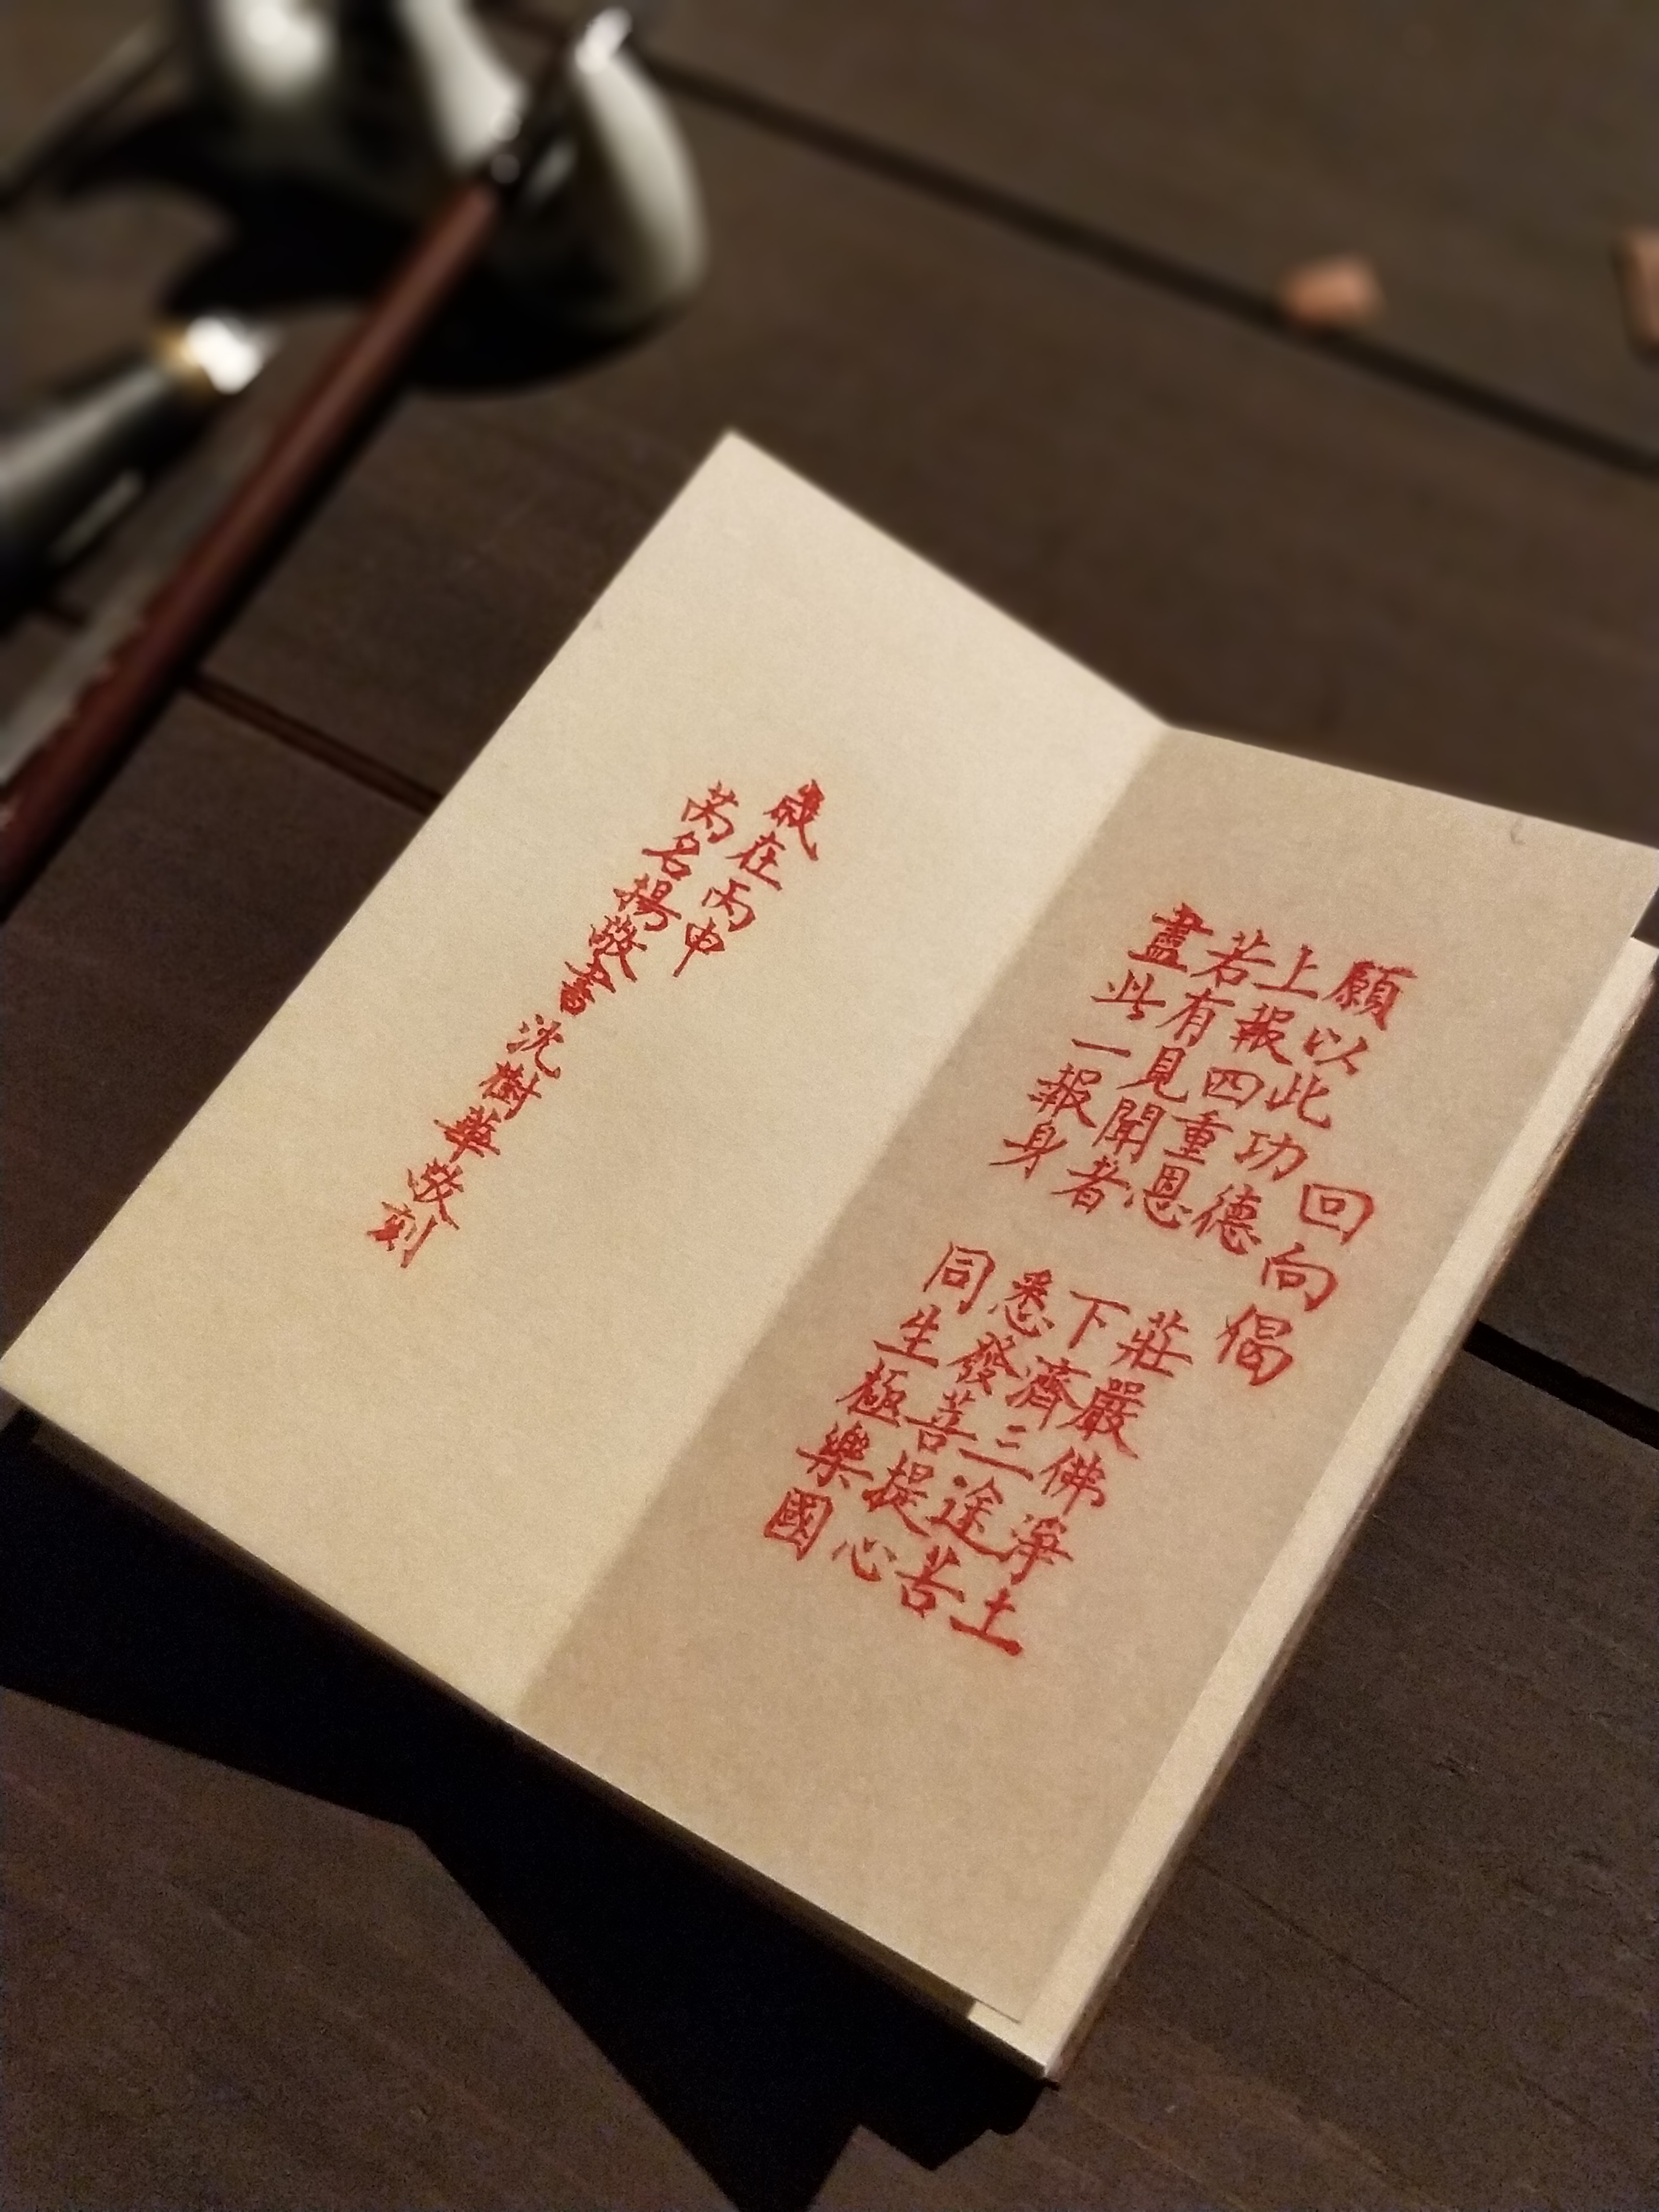 回向偈
願以此功德 莊嚴佛淨土
上報四重恩 下濟三途苦
若有見聞者 悉發菩提心
盡此一報身 同生極樂國
歲在丙申
芮名揚敬書 沈樹華敬刻